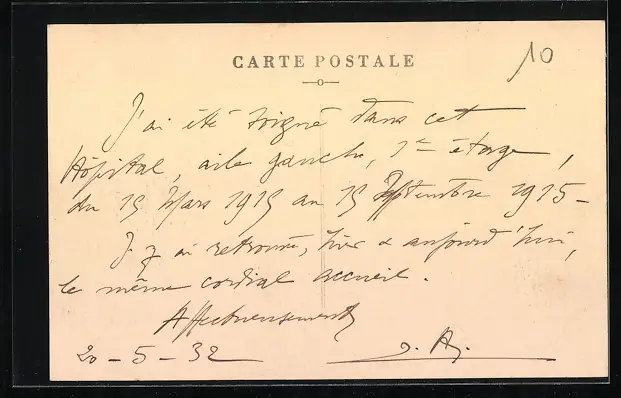 CARTE POSTALE
10
J'ai été soigné dans cet
Hôpital, aile gauche, 1er étage,
du 15 Mars 1915 au 15 Septembre 1915 -
J'y ai retrouvé, hier & aujourd'hui,
le même cordial accueil.
Affectueusement
20 - 5 - 32